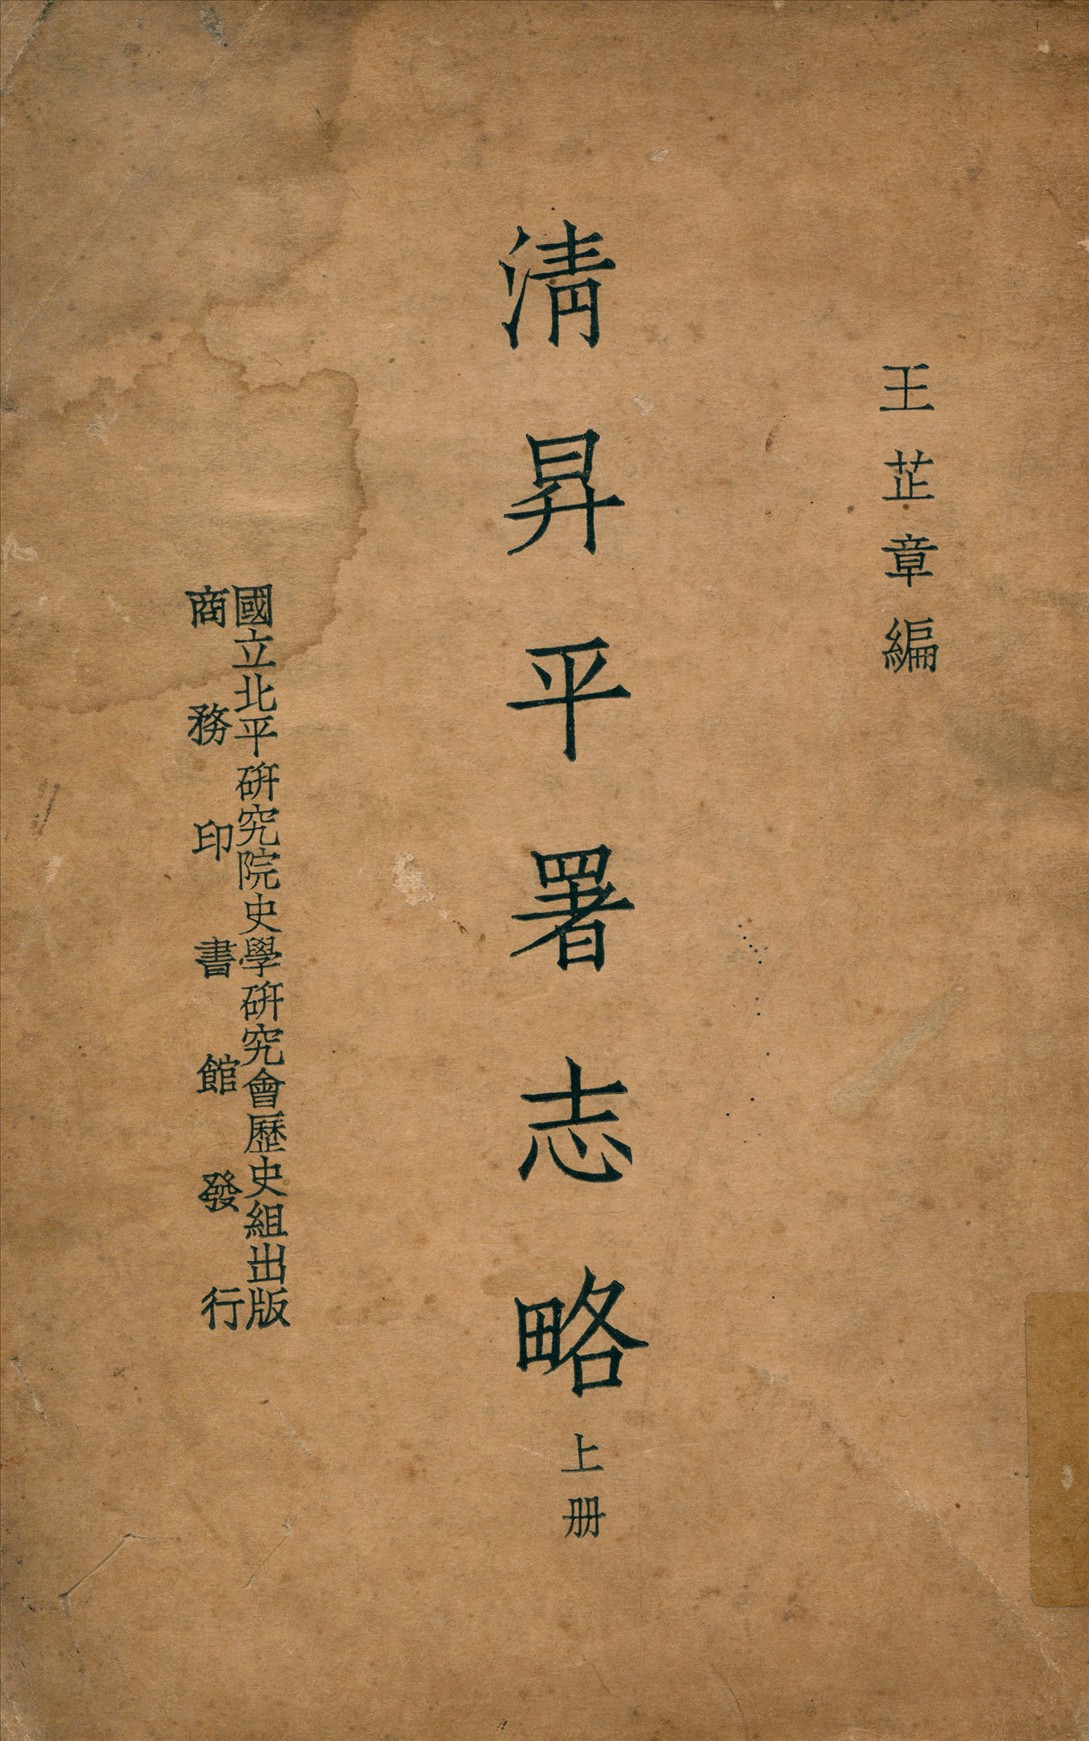 王芷章編
清昇平署志略 上册
國立北平研究院史學研究會歷史組出版
商務印書館發行